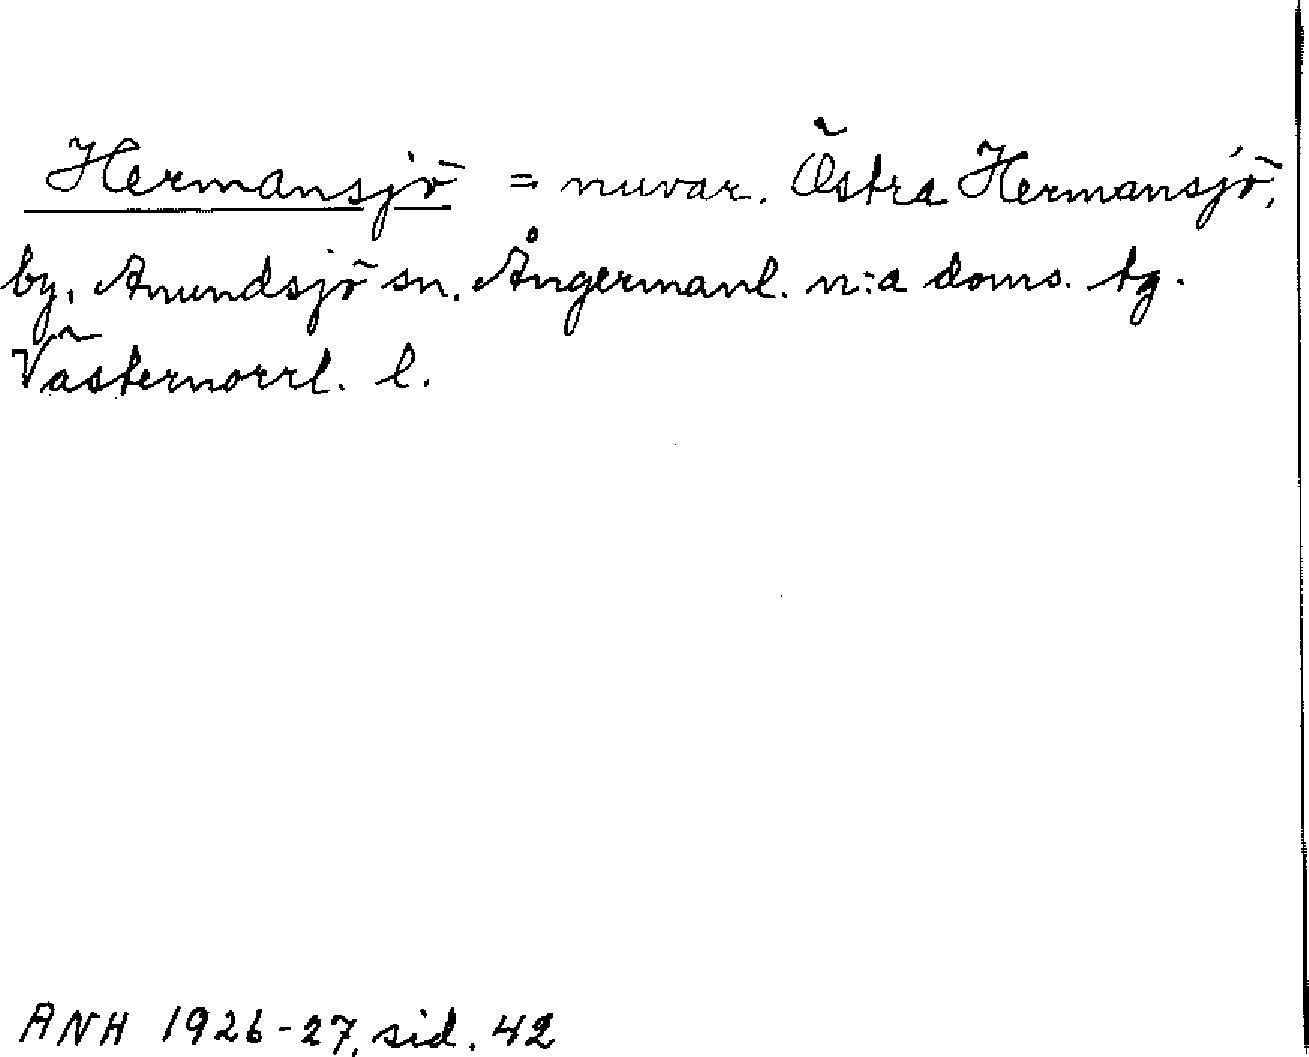 Hermansjö = nuvar. Östra Hermansjö,
by, Anundsjö sn. Ångermanl. n:a doms. tg.
Västernorrl. l.
ANH 1926-27, sid. 42